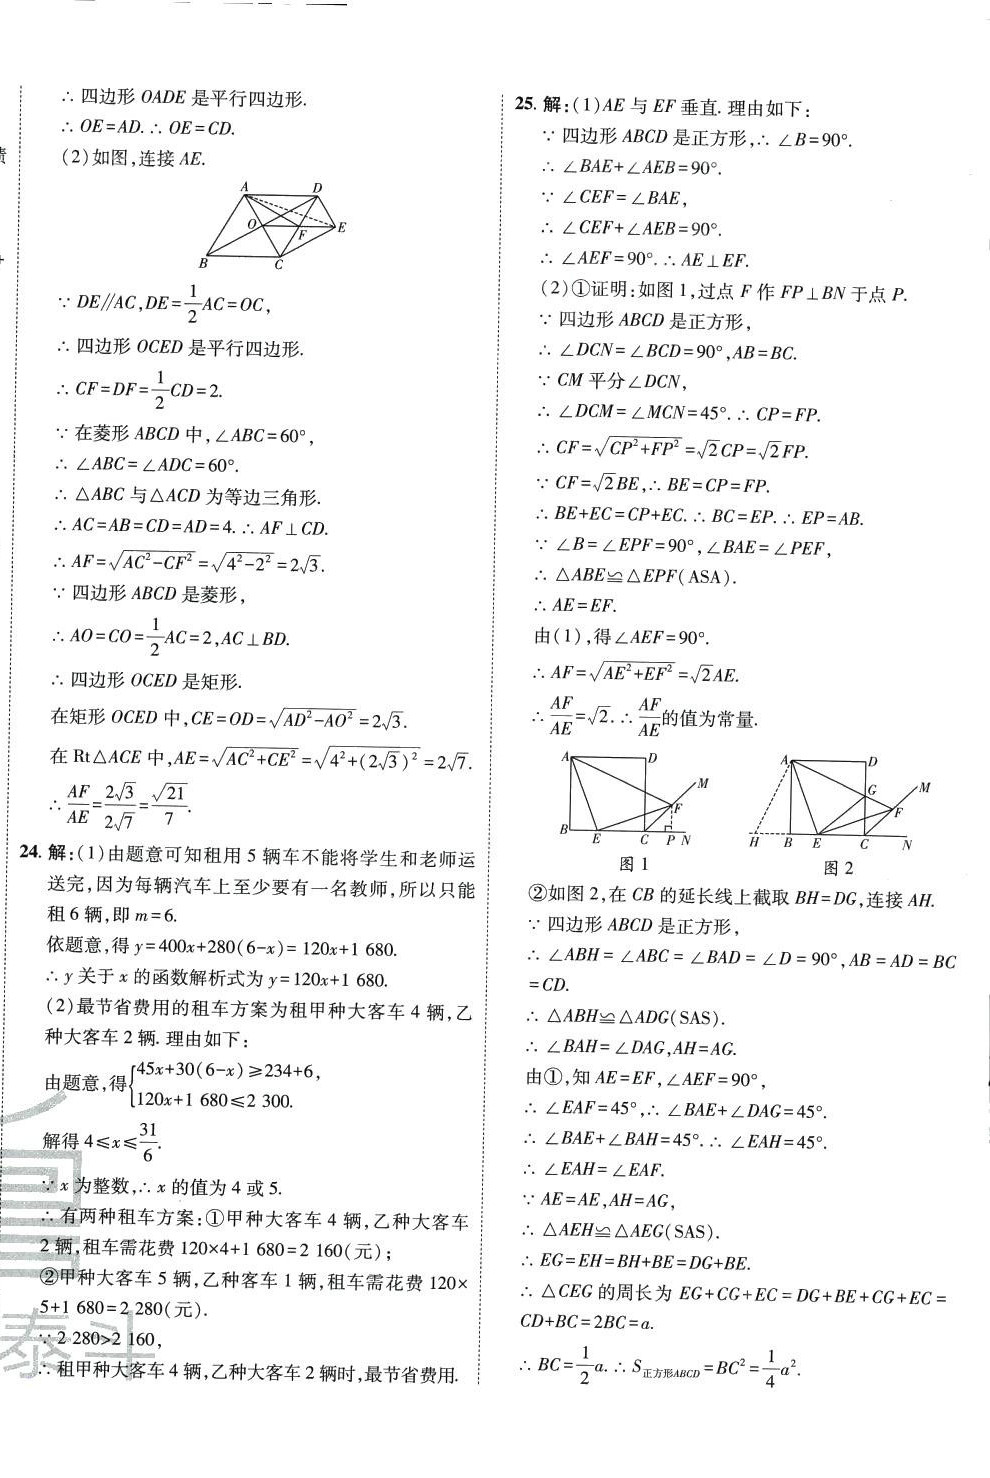 ∴ 四边形 OADE 是平行四边形.
∴ OE=AD. ∴ OE=CD.
(2)如图,连接 AE.
A D
O F E
B C
∵ DE∥AC,DE=1/2AC=OC,
∴ 四边形 OCED 是平行四边形.
∴ CF=DF=1/2CD=2.
∵ 在菱形 ABCD 中,∠ABC=60°,
∴ ∠ABC=∠ADC=60°.
∴ △ABC 与△ACD 为等边三角形.
∴ AC=AB=CD=AD=4. ∴ AF⊥CD.
∴ AF=√(AC²-CF²)=√(4²-2²)=2√3.
∵ 四边形 ABCD 是菱形,
∴ AO=CO=1/2AC=2,AC⊥BD.
∴ 四边形 OCED 是矩形.
在矩形 OCED 中,CE=OD=√(AD²-AO²)=2√3.
在 Rt△ACE 中,AE=√(AC²+CE²)=√(4²+(2√3)²)=2√7.
∴ AF/AE=2√3/2√7=√21/7.
24. 解:(1)由题意可知租用 5 辆车不能将学生和老师运
送完,因为每辆汽车上至少要有一名教师,所以只能
租 6 辆,即 m=6.
依题意,得 y=400x+280(6-x)= 120x+1 680.
∴ y 关于 x 的函数解析式为 y=120x+1 680.
(2)最节省费用的租车方案为租甲种大客车 4 辆,乙
种大客车 2 辆. 理由如下:
由题意,得{45x+30(6-x)≥234+6,
120x+1 680≤2 300.
解得 4≤x≤31/6.
∵ x 为整数,∴ x 的值为 4 或 5.
∴ 有两种租车方案:①甲种大客车 4 辆,乙种大客车
2 辆,租车需花费 120×4+1 680=2 160(元);
②甲种大客车 5 辆,乙种客车 1 辆,租车需花费 120×
5+1 680=2 280(元).
∵ 2 280>2 160,
∴ 租甲种大客车 4 辆,乙种大客车 2 辆时,最节省费用.
泰斗
25. 解:(1)AE 与 EF 垂直. 理由如下:
∵ 四边形 ABCD 是正方形,∴ ∠B=90°.
∴ ∠BAE+∠AEB=90°.
∵ ∠CEF=∠BAE,
∴ ∠CEF+∠AEB=90°.
∴ ∠AEF=90°. ∴ AE⊥EF.
(2)①证明:如图 1,过点 F 作 FP⊥BN 于点 P.
∵ 四边形 ABCD 是正方形,
∴ ∠DCN=∠BCD=90°,AB=BC.
∵ CM 平分∠DCN,
∴ ∠DCM=∠MCN=45°. ∴ CP=FP.
∴ CF=√(CP²+FP²)=√2CP=√2FP.
∵ CF=√2BE,∴ BE=CP=FP.
∴ BE+EC=CP+EC. ∴ BC=EP. ∴ EP=AB.
∵ ∠B=∠EPF=90°,∠BAE=∠PEF,
∴ △ABE≌△EPF(ASA).
∴ AE=EF.
由(1),得∠AEF=90°.
∴ AF=√(AE²+EF²)=√2AE.
∴ AF/AE=√2. ∴ AF/AE的值为常量.
A D M F B E C P N
图 1
A D G M F H B E C N
图 2
②如图 2,在 CB 的延长线上截取 BH=DG,连接 AH.
∵ 四边形 ABCD 是正方形,
∴ ∠ABH=∠ABC=∠BAD=∠D=90°,AB=AD=BC
=CD.
∴ △ABH≌△ADG(SAS).
∴ ∠BAH=∠DAG,AH=AG.
由①,知 AE=EF,∠AEF=90°,
∴ ∠EAF=45°,∴ ∠BAE+∠DAG=45°.
∴ ∠BAE+∠BAH=45°. ∴ ∠EAH=45°.
∴ ∠EAH=∠EAF.
∵ AE=AE,AH=AG,
∴ △AEH≌△AEG(SAS).
∴ EG=EH=BH+BE=DG+BE.
∴ △CEG 的周长为 EG+CG+EC=DG+BE+CG+EC=
CD+BC=2BC=a.
∴ BC=1/2a. ∴ S正方形ABCD=BC²=1/4a².